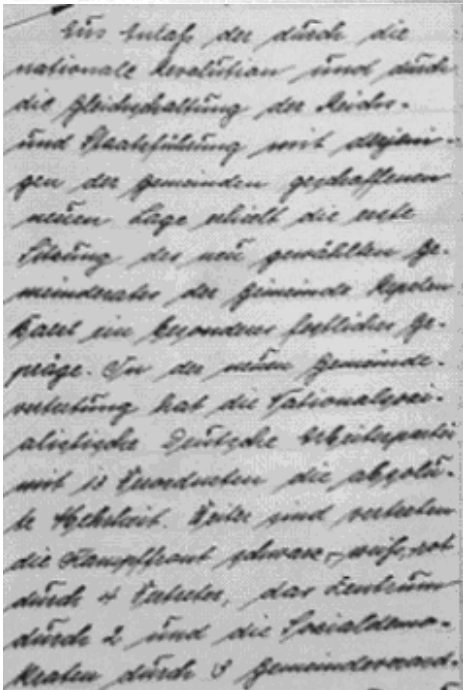 Aus Anlaß der durch die
nationale Revolution und durch
die Gleichschaltung der Reichs-
und Staatsführung mit derjeni-
gen der Gemeinden geschaffenen
neuen Lage erhielt die erste
Sitzung des neu gewählten Ge-
meinderates der Gemeinde Repelen-
Baerl ein besonders festliches Ge-
präge. In der neuen Gemeinde-
vertretung hat die Nationalsozi-
alistische Deutsche Arbeiterpartei
mit 13 Verordneten die absolu-
te Mehrheit. Weiter sind vertreten
die Kampffront schwarz-weiß-rot
durch 4 Vertreter, das Zentrum
durch 2 und die Sozialdemo-
kraten durch Gemeindeverord-